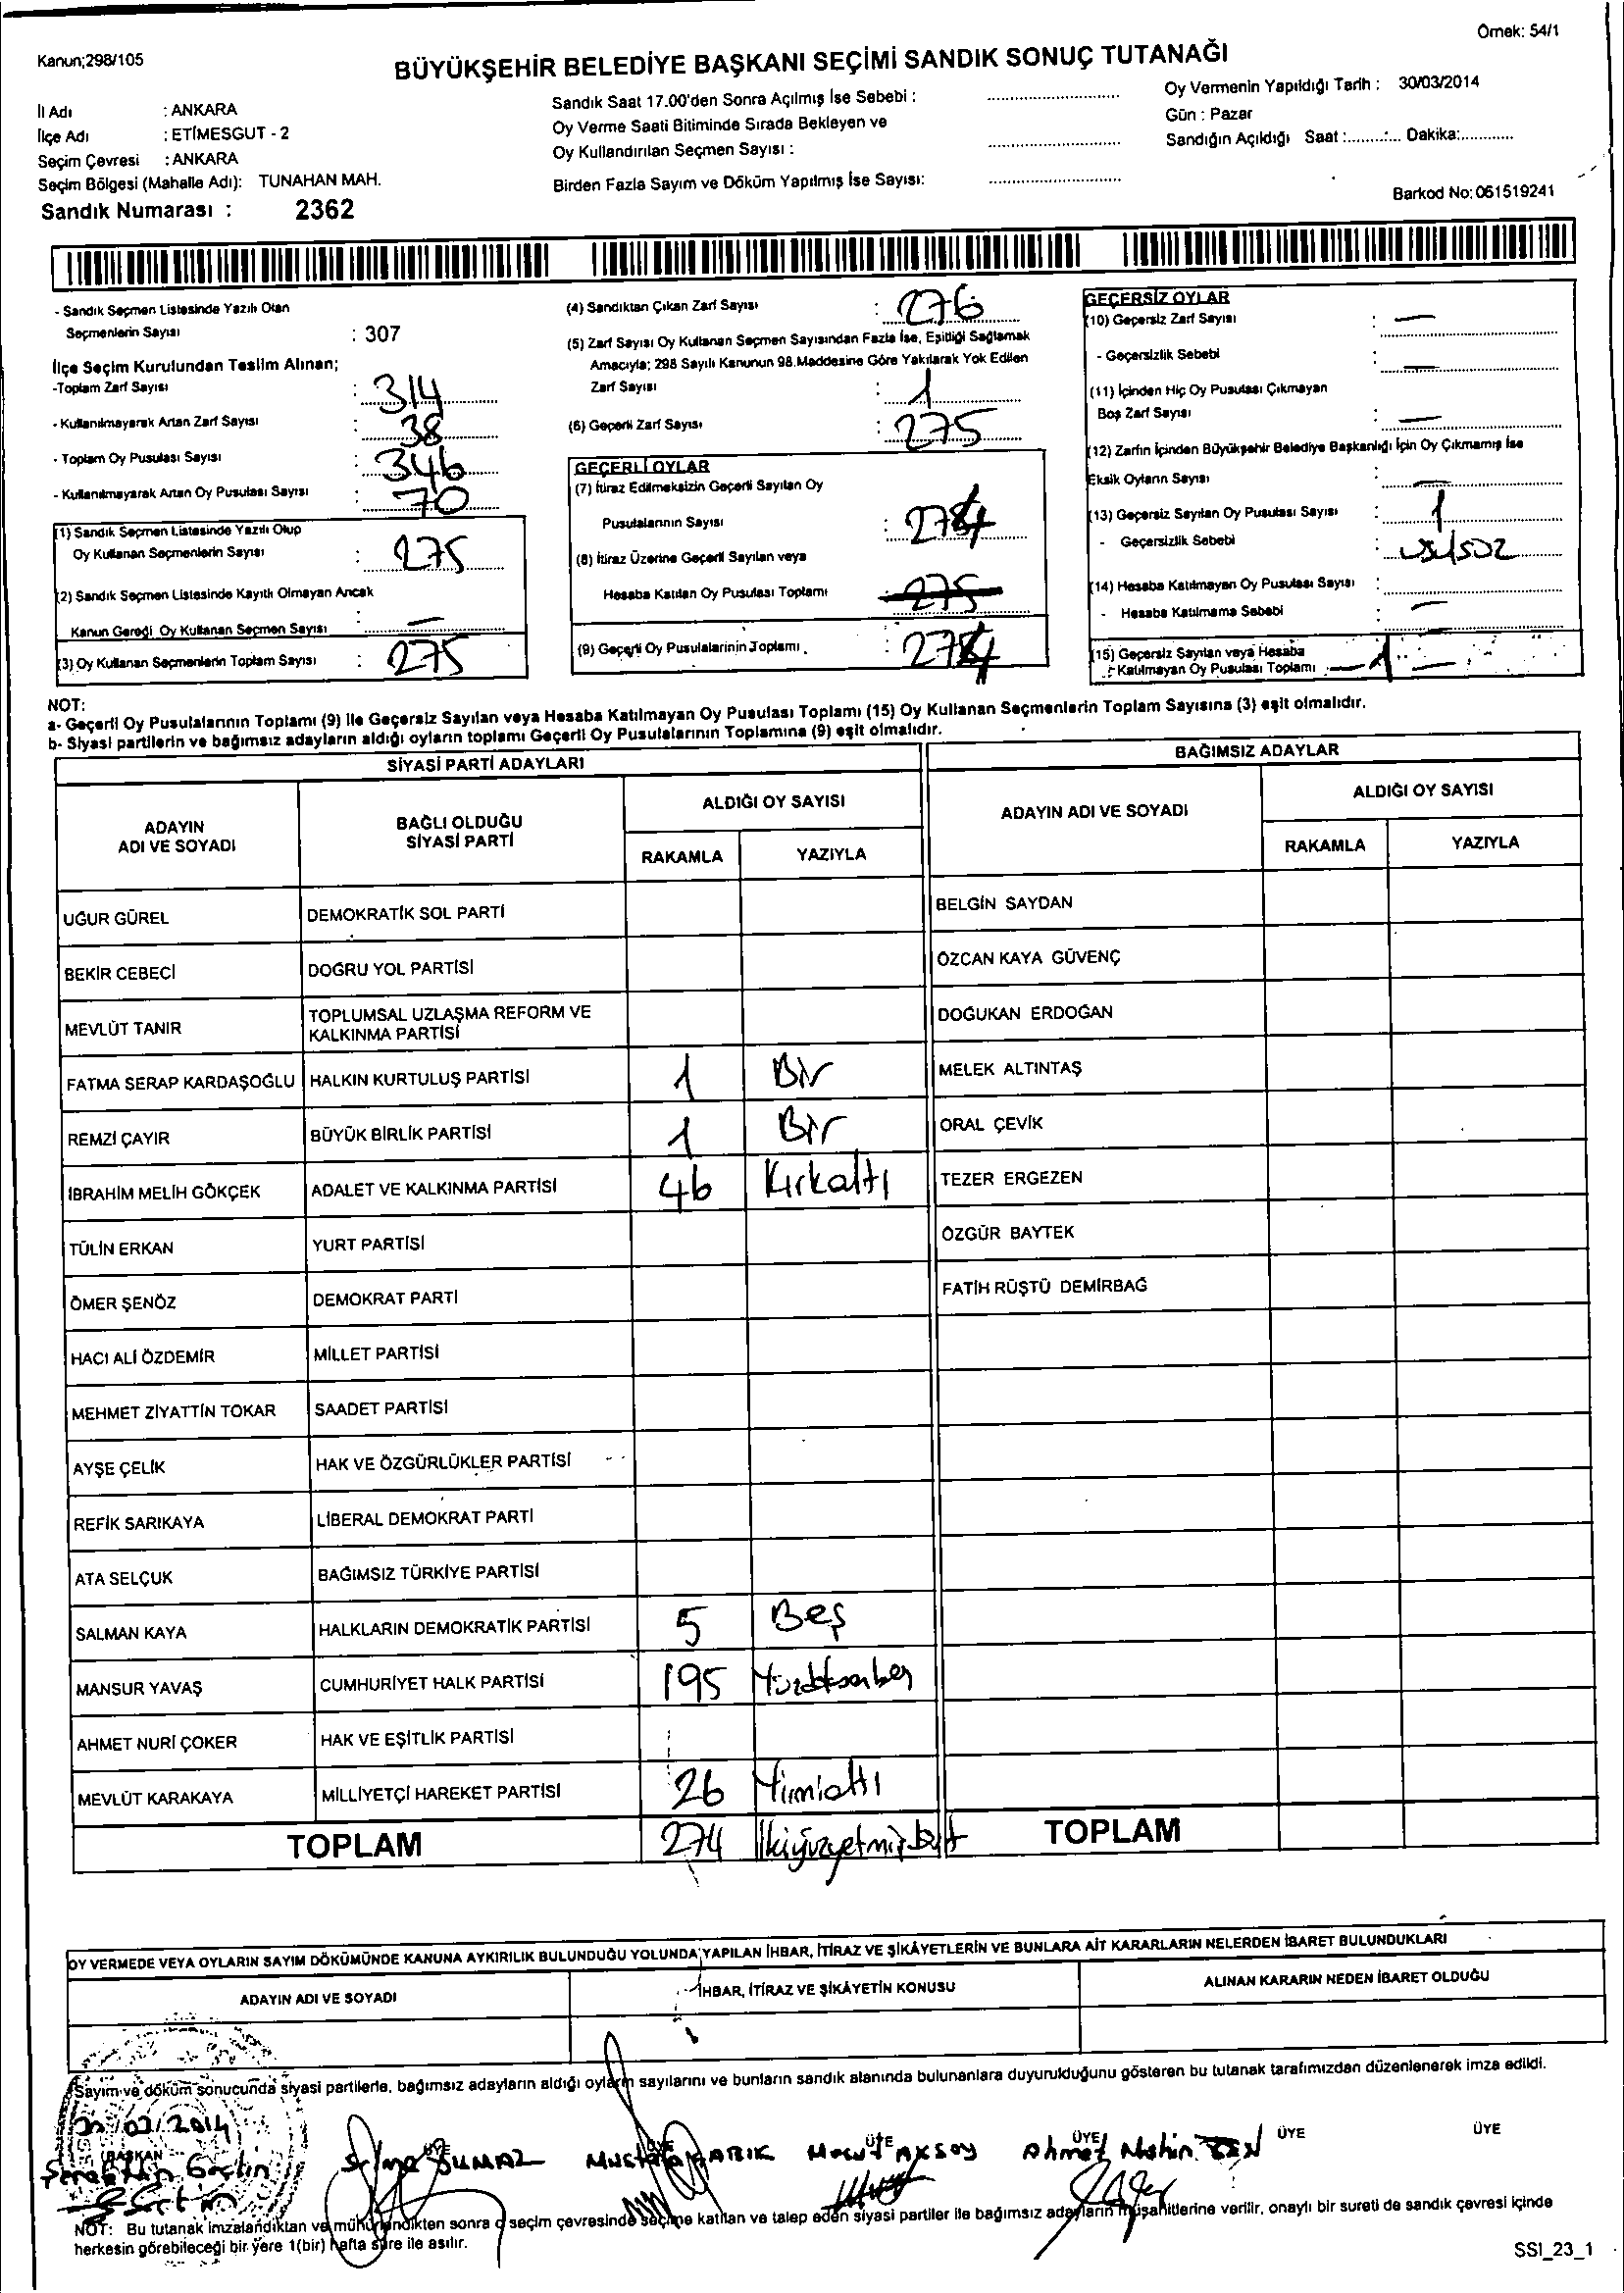 Örnek: 54/1
Kanun;298/105
BÜYÜKŞEHİR BELEDİYE BAŞKANI SEÇİMİ SANDIK SONUÇ TUTANAĞI
İl Adı : ANKARA
İlçe Adı : ETİMESGUT - 2
Seçim Çevresi : ANKARA
Seçim Bölgesi (Mahalle Adı): TUNAHAN MAH.
Sandık Numarası : 2362
Sandık Saat 17.00'den Sonra Açılmış İse Sebebi :
Oy Verme Saati Bitiminde Sırada Bekleyen ve
Oy Kullandırılan Seçmen Sayısı :
Birden Fazla Sayım ve Döküm Yapılmış İse Sayısı:
Oy Vermenin Yapıldığı Tarih : 30/03/2014
Gün : Pazar
Sandığın Açıldığı Saat :.........:... Dakika:............
Barkod No: 061519241
- Sandık Seçmen Listesinde Yazılı Olan
Seçmenlerin Sayısı : 307
İlçe Seçim Kurulundan Teslim Alınan;
-Toplam Zarf Sayısı : 314
- Kullanılmayarak Artan Zarf Sayısı : 38
- Toplam Oy Pusulası Sayısı : 346
- Kullanılmayarak Artan Oy Pusulası Sayısı : 70
(1) Sandık Seçmen Listesinde Yazılı Olup
Oy Kullanan Seçmenlerin Sayısı : 275
(2) Sandık Seçmen Listesinde Kayıtlı Olmayan Ancak
Kanun Gereği Oy Kullanan Seçmen Sayısı : —
(3) Oy Kullanan Seçmenlerin Toplam Sayısı : 275
(4) Sandıktan Çıkan Zarf Sayısı : 276
(5) Zarf Sayısı Oy Kullanan Seçmen Sayısından Fazla İse, Eşitliği Sağlamak
Amacıyla; 298 Sayılı Kanunun 98.Maddesine Göre Yakılarak Yok Edilen
Zarf Sayısı : 1
(6) Geçerli Zarf Sayısı : 275
GEÇERLİ OYLAR
(7) İtiraz Edilmeksizin Geçerli Sayılan Oy
Pusulalarının Sayısı : 274
(8) İtiraz Üzerine Geçerli Sayılan veya
Hesaba Katılan Oy Pusulası Toplamı 275
(9) Geçerli Oy Pusulalarinin Toplamı : 274
GEÇERSİZ OYLAR
(10) Geçersiz Zarf Sayısı : —
- Geçersizlik Sebebi : —
(11) İçinden Hiç Oy Pusulası Çıkmayan
Boş Zarf Sayısı : —
(12) Zarfın İçinden Büyükşehir Belediye Başkanlığı İçin Oy Çıkmamış İse
Eksik Oyların Sayısı : —
(13) Geçersiz Sayılan Oy Pusulası Sayısı : 1
- Geçersizlik Sebebi :
(14) Hesaba Katılmayan Oy Pusulası Sayısı :
- Hesaba Katılmama Sebebi : —
(15) Geçersiz Sayılan veya Hesaba
Katılmayan Oy Pusulası Toplamı : — 1 —
NOT:
a- Geçerli Oy Pusulalarının Toplamı (9) ile Geçersiz Sayılan veya Hesaba Katılmayan Oy Pusulası Toplamı (15) Oy Kullanan Seçmenlerin Toplam Sayısına (3) eşit olmalıdır.
b- Siyasi partilerin ve bağımsız adayların aldığı oyların toplamı Geçerli Oy Pusulalarının Toplamına (9) eşit olmalıdır.
SİYASİ PARTİ ADAYLARI
ADAYIN ADI VE SOYADI
BAĞLI OLDUĞU SİYASİ PARTİ
ALDIĞI OY SAYISI
RAKAMLA YAZIYLA
UĞUR GÜREL DEMOKRATİK SOL PARTİ
BEKİR CEBECİ DOĞRU YOL PARTİSİ
MEVLÜT TANIR TOPLUMSAL UZLAŞMA REFORM VE KALKINMA PARTİSİ
FATMA SERAP KARDAŞOĞLU HALKIN KURTULUŞ PARTİSİ 1 Bir
REMZİ ÇAYIR BÜYÜK BİRLİK PARTİSİ 1 Bir
İBRAHİM MELİH GÖKÇEK ADALET VE KALKINMA PARTİSİ 46 Kırkaltı
TÜLİN ERKAN YURT PARTİSİ
ÖMER ŞENÖZ DEMOKRAT PARTİ
HACI ALİ ÖZDEMİR MİLLET PARTİSİ
MEHMET ZİYATTİN TOKAR SAADET PARTİSİ
AYŞE ÇELİK HAK VE ÖZGÜRLÜKLER PARTİSİ
REFİK SARIKAYA LİBERAL DEMOKRAT PARTİ
ATA SELÇUK BAĞIMSIZ TÜRKİYE PARTİSİ
SALMAN KAYA HALKLARIN DEMOKRATİK PARTİSİ 5 Beş
MANSUR YAVAŞ CUMHURİYET HALK PARTİSİ 195 Yüzdoksanbeş
AHMET NURİ ÇOKER HAK VE EŞİTLİK PARTİSİ
MEVLÜT KARAKAYA MİLLİYETÇİ HAREKET PARTİSİ 26 Yirmialtı
TOPLAM 274 İkiyüzyetmişdört
BAĞIMSIZ ADAYLAR
ADAYIN ADI VE SOYADI
ALDIĞI OY SAYISI
RAKAMLA YAZIYLA
BELGİN SAYDAN
ÖZCAN KAYA GÜVENÇ
DOĞUKAN ERDOĞAN
MELEK ALTINTAŞ
ORAL ÇEVİK
TEZER ERGEZEN
ÖZGÜR BAYTEK
FATİH RÜŞTÜ DEMİRBAĞ
TOPLAM
OY VERMEDE VEYA OYLARIN SAYIM DÖKÜMÜNDE KANUNA AYKIRILIK BULUNDUĞU YOLUNDA YAPILAN İHBAR, İTİRAZ VE ŞİKÂYETLERİN VE BUNLARA AİT KARARLARIN NELERDEN İBARET BULUNDUKLARI
ADAYIN ADI VE SOYADI
İHBAR, İTİRAZ VE ŞİKÂYETİN KONUSU
ALINAN KARARIN NEDEN İBARET OLDUĞU
Sayım ve döküm sonucunda siyasi partilerle, bağımsız adayların aldığı oyların sayılarını ve bunların sandık alanında bulunanlara duyurulduğunu gösteren bu tutanak tarafımızdan düzenlenerek imza edildi.
BAŞKAN ÜYE ÜYE ÜYE ÜYE ÜYE ÜYE
Mustafa KARIK AKSOY Ahmet
NOT: Bu tutanak imzalandıktan ve mühürlendikten sonra o seçim çevresinde seçime katılan ve talep eden siyasi partiler ile bağımsız adayların müşahitlerine verilir, onaylı bir sureti de sandık çevresi içinde
herkesin görebileceği bir yere 1(bir) hafta süre ile asılır.
SSI_23_1